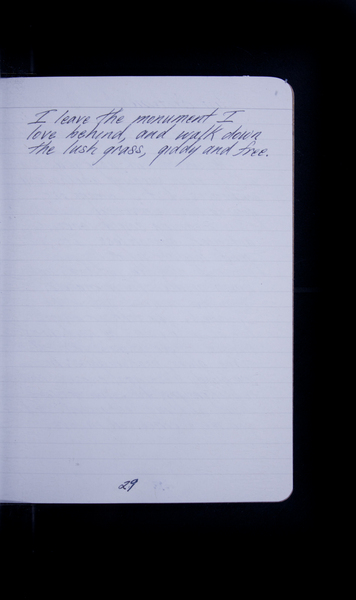 I leave the monument I
love behind, and walk down
the lush grass, giddy and free.
29